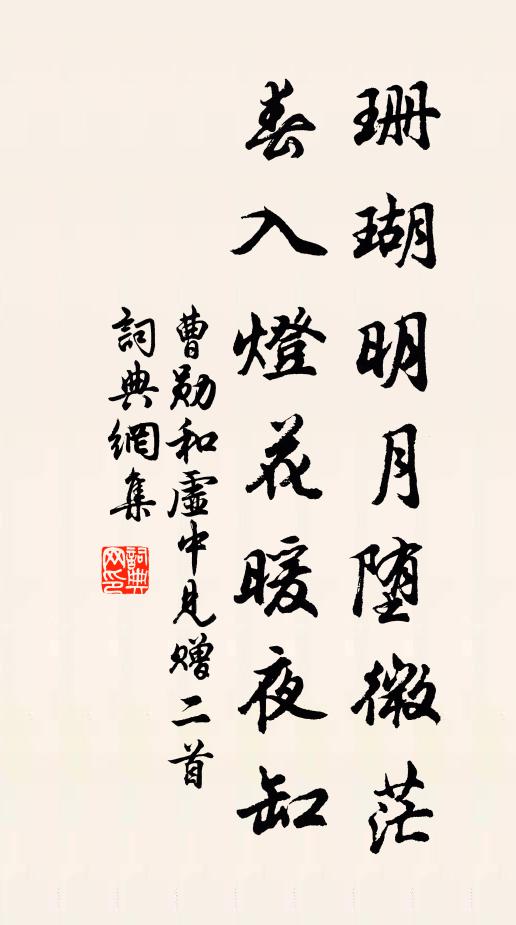 珊瑚明月堕微茫
春入燈花暖夜缸
曹勛和虛中見贈二首
詞典網集
詞典
网印